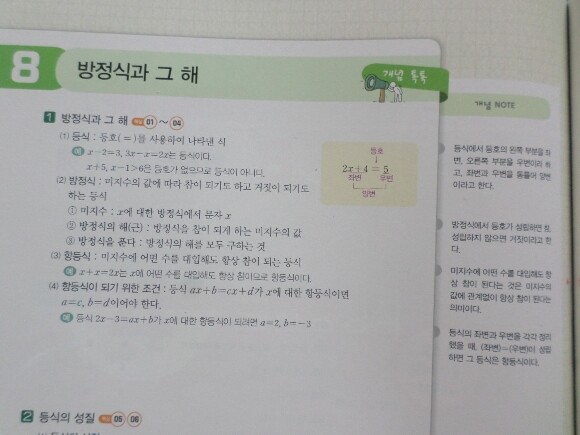 8 방정식과 그 해
개념 톡톡
1 방정식과 그 해 01 ~ 04
(1) 등식 : 등호(=)를 사용하여 나타낸 식
예 x-2=3, 3x-x=2x는 등식이다.
x+5, x-1>6은 등호가 없으므로 등식이 아니다.
(2) 방정식 : 미지수의 값에 따라 참이 되기도 하고 거짓이 되기도
하는 등식
① 미지수 : x에 대한 방정식에서 문자 x
② 방정식의 해(근) : 방정식을 참이 되게 하는 미지수의 값
③ 방정식을 푼다 : 방정식의 해를 모두 구하는 것
(3) 항등식 : 미지수에 어떤 수를 대입해도 항상 참이 되는 등식
예 x+x=2x는 x에 어떤 수를 대입해도 항상 참이므로 항등식이다.
(4) 항등식이 되기 위한 조건 : 등식 ax+b=cx+d가 x에 대한 항등식이면
a=c, b=d이어야 한다.
예 등식 2x-3=ax+b가 x에 대한 항등식이 되려면 a=2, b=-3
등호
2x+4=5
좌변 우변
양변
2 등식의 성질 05 06
개념 NOTE
등식에서 등호의 왼쪽 부분을 좌
변, 오른쪽 부분을 우변이라 하
고, 좌변과 우변을 통틀어 양변
이라고 한다.
방정식에서 등호가 성립하면 참,
성립하지 않으면 거짓이라고 한
다.
미지수에 어떤 수를 대입해도 항
상 참이 된다는 것은 미지수의
값에 관계없이 항상 참이 된다는
의미이다.
등식의 좌변과 우변을 각각 정리
했을 때, (좌변)=(우변)이 성립
하면 그 등식은 항등식이다.